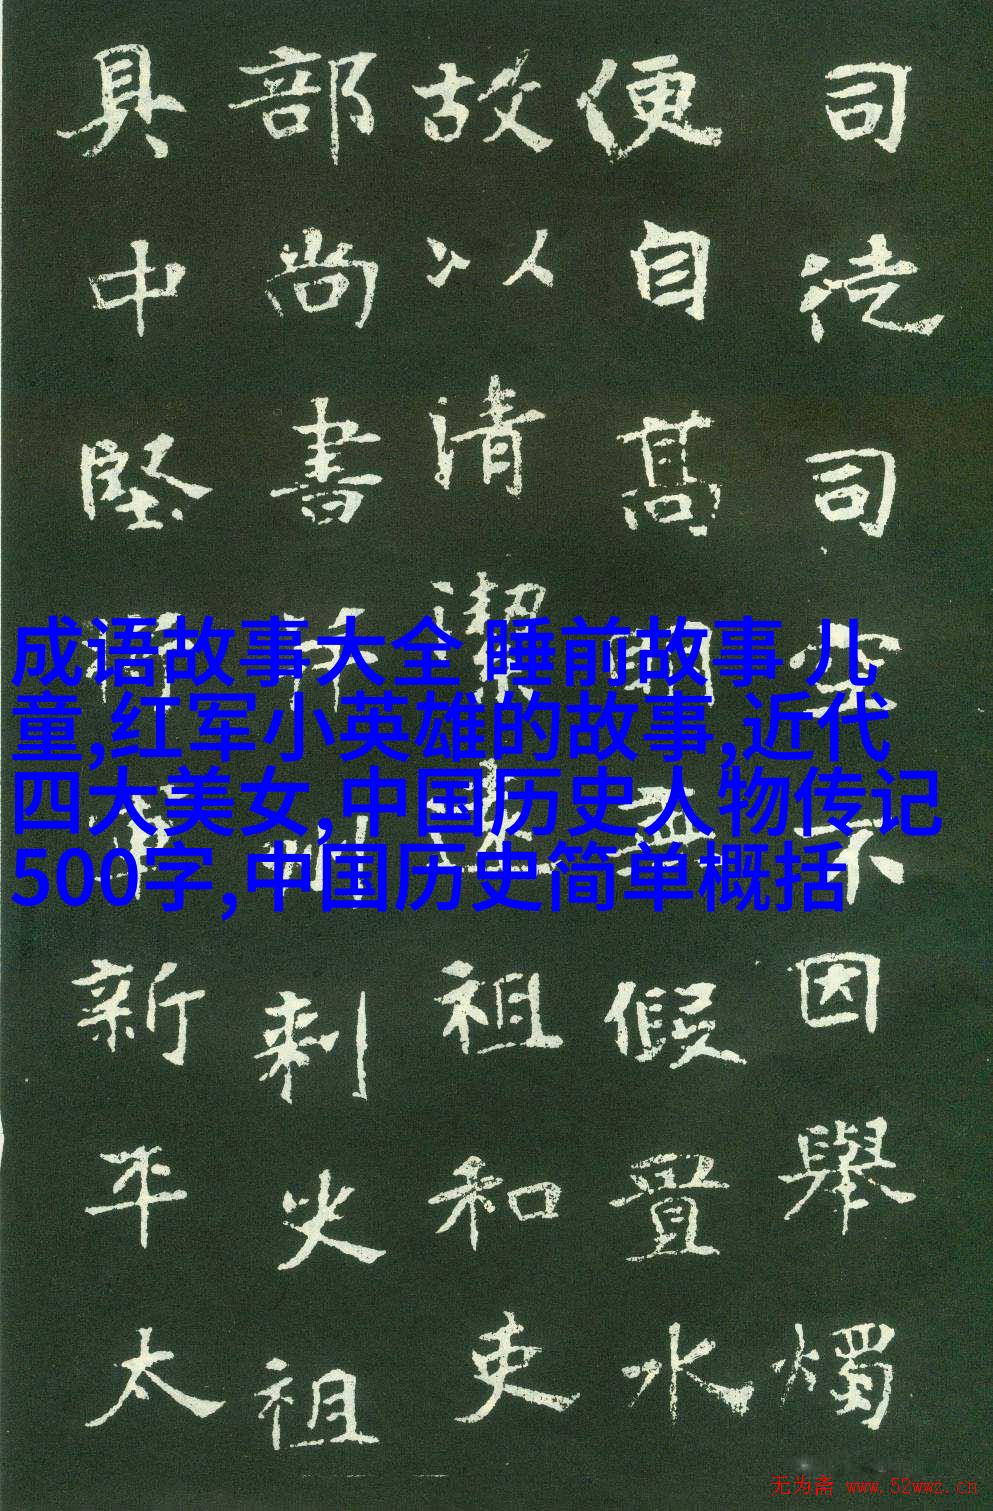 司徒司因舉燭
便自高假置水
故以清潔祖和吏
部尚書刺史祖
具中堅新平太
成语故事大全 睡前故事 儿
童,红军小英雄的故事,近代
四大美女,中国历史人物传记
500字,中国历史简单概括
无为斋 www.52wwz.cn